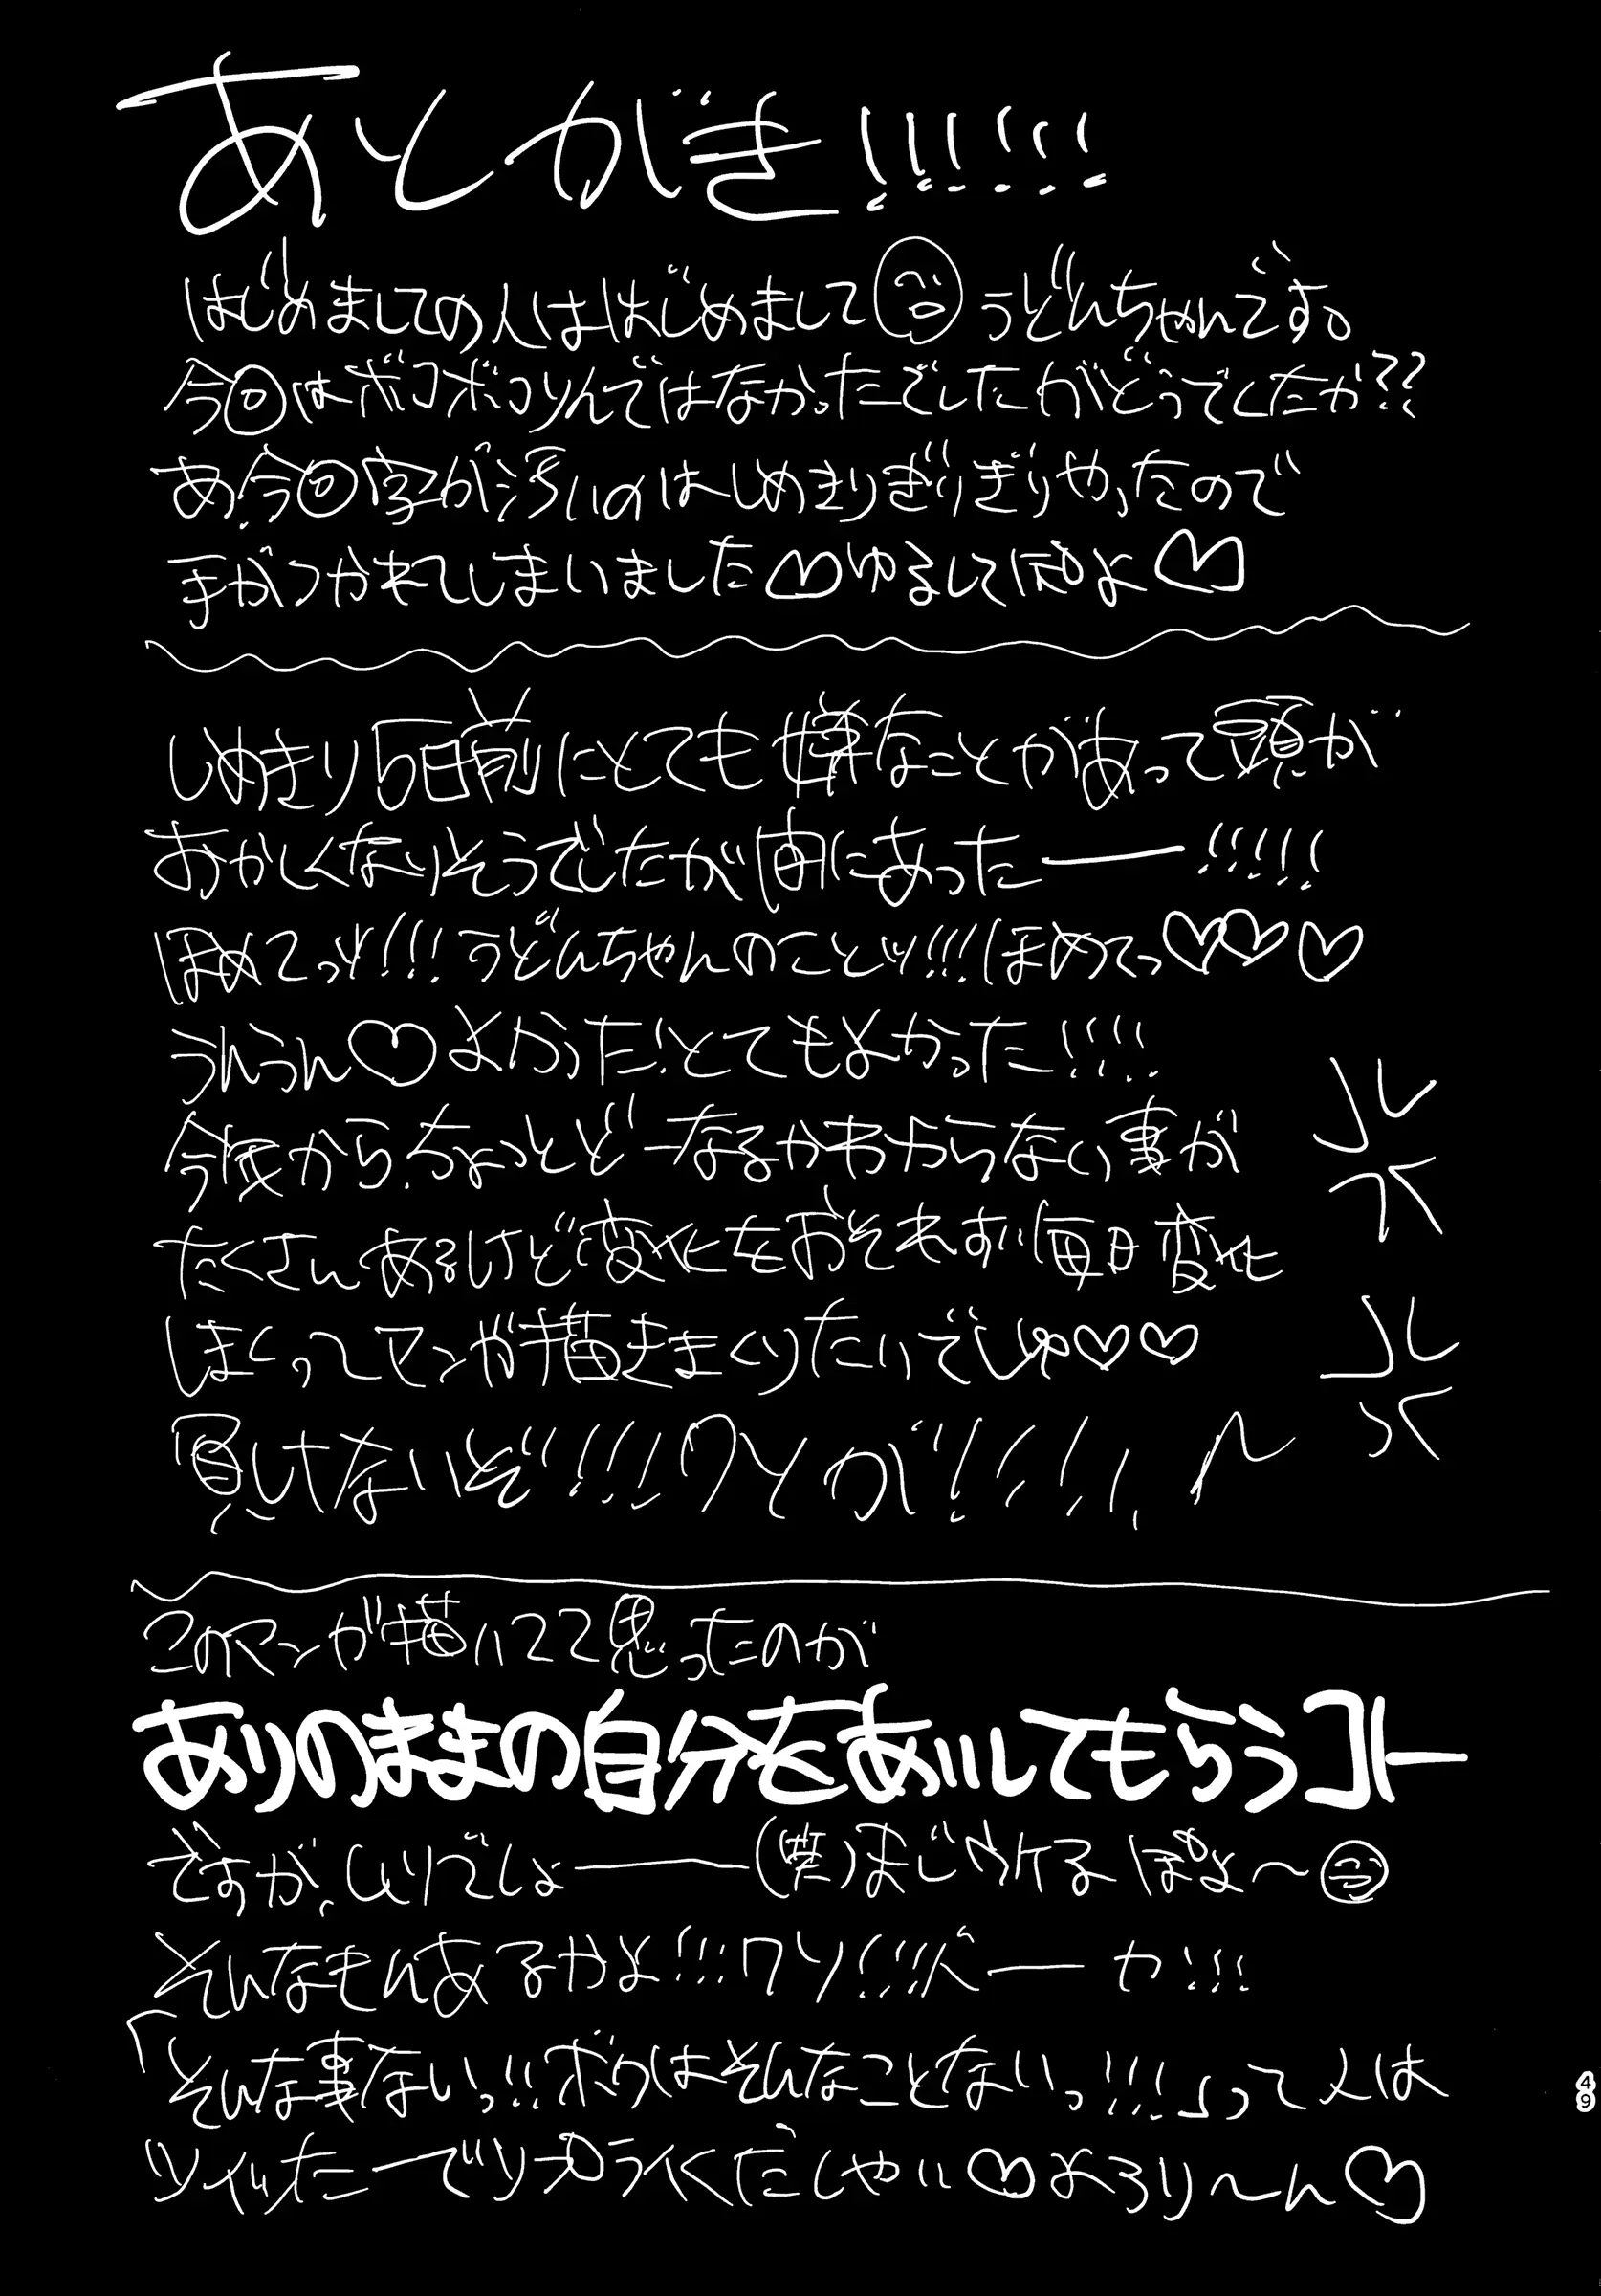 あとがき!!!!!!
はじめましての人ははじめまして うどんちゃんです。
今回はボコボコりんではなかったでしたがどうでしたか??
あ、今回字が汚いのはしめきりぎりぎりやったので
手がつかれてしまいました♡ゆるしてぽよ♡
しめきり5日前にとても嫌なことがあって頭が
おかしくなりそうでしたが間にあったー!!!!!
ほめてっッ!!!うどんちゃんのことッ!!!ほめてっ♡♡♡
うんうん♡よかった!とてもよかった!!!!
今後から、ちょっとどーなるかわからない事が
たくさんあるけど変化をおそれず毎日変化
しまくってマンガ描きまくりたいでしゅ♡♡
負けないぞ!!!クソが!!!!
このマンガ描いてて思ったのが
ありのままの自分をあいしてもらうコト
ですが、ムリでしょー(笑)まじウケるぽよ〜
そんなもんあるかよ!!!クソ!!!バーカ!!!
「そんな事ないっ!!ボクはそんなことないっ!!!」って人は
ツイッターでリプライくだしゃい♡よろり〜ん♡
49